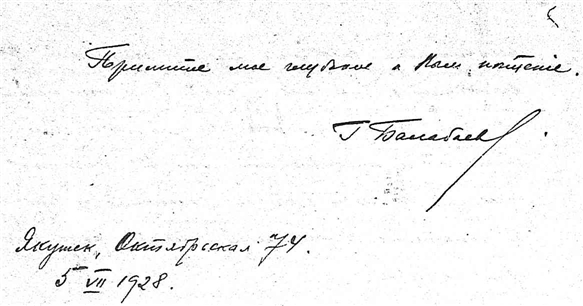 Примите мое глубокое к Вам почтеніе.
Г Балабаев
Якутск, Октябрьская 74.
5 VII 1928.